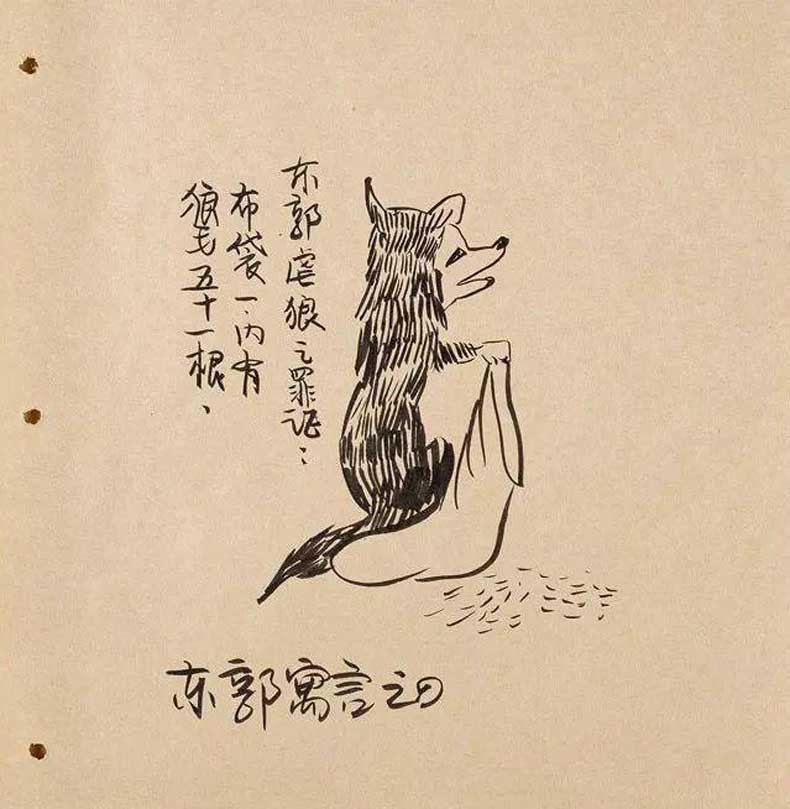 东郭虐狼之罪证：
布袋一、内有
狼毛五十一根、
东郭寓言之四